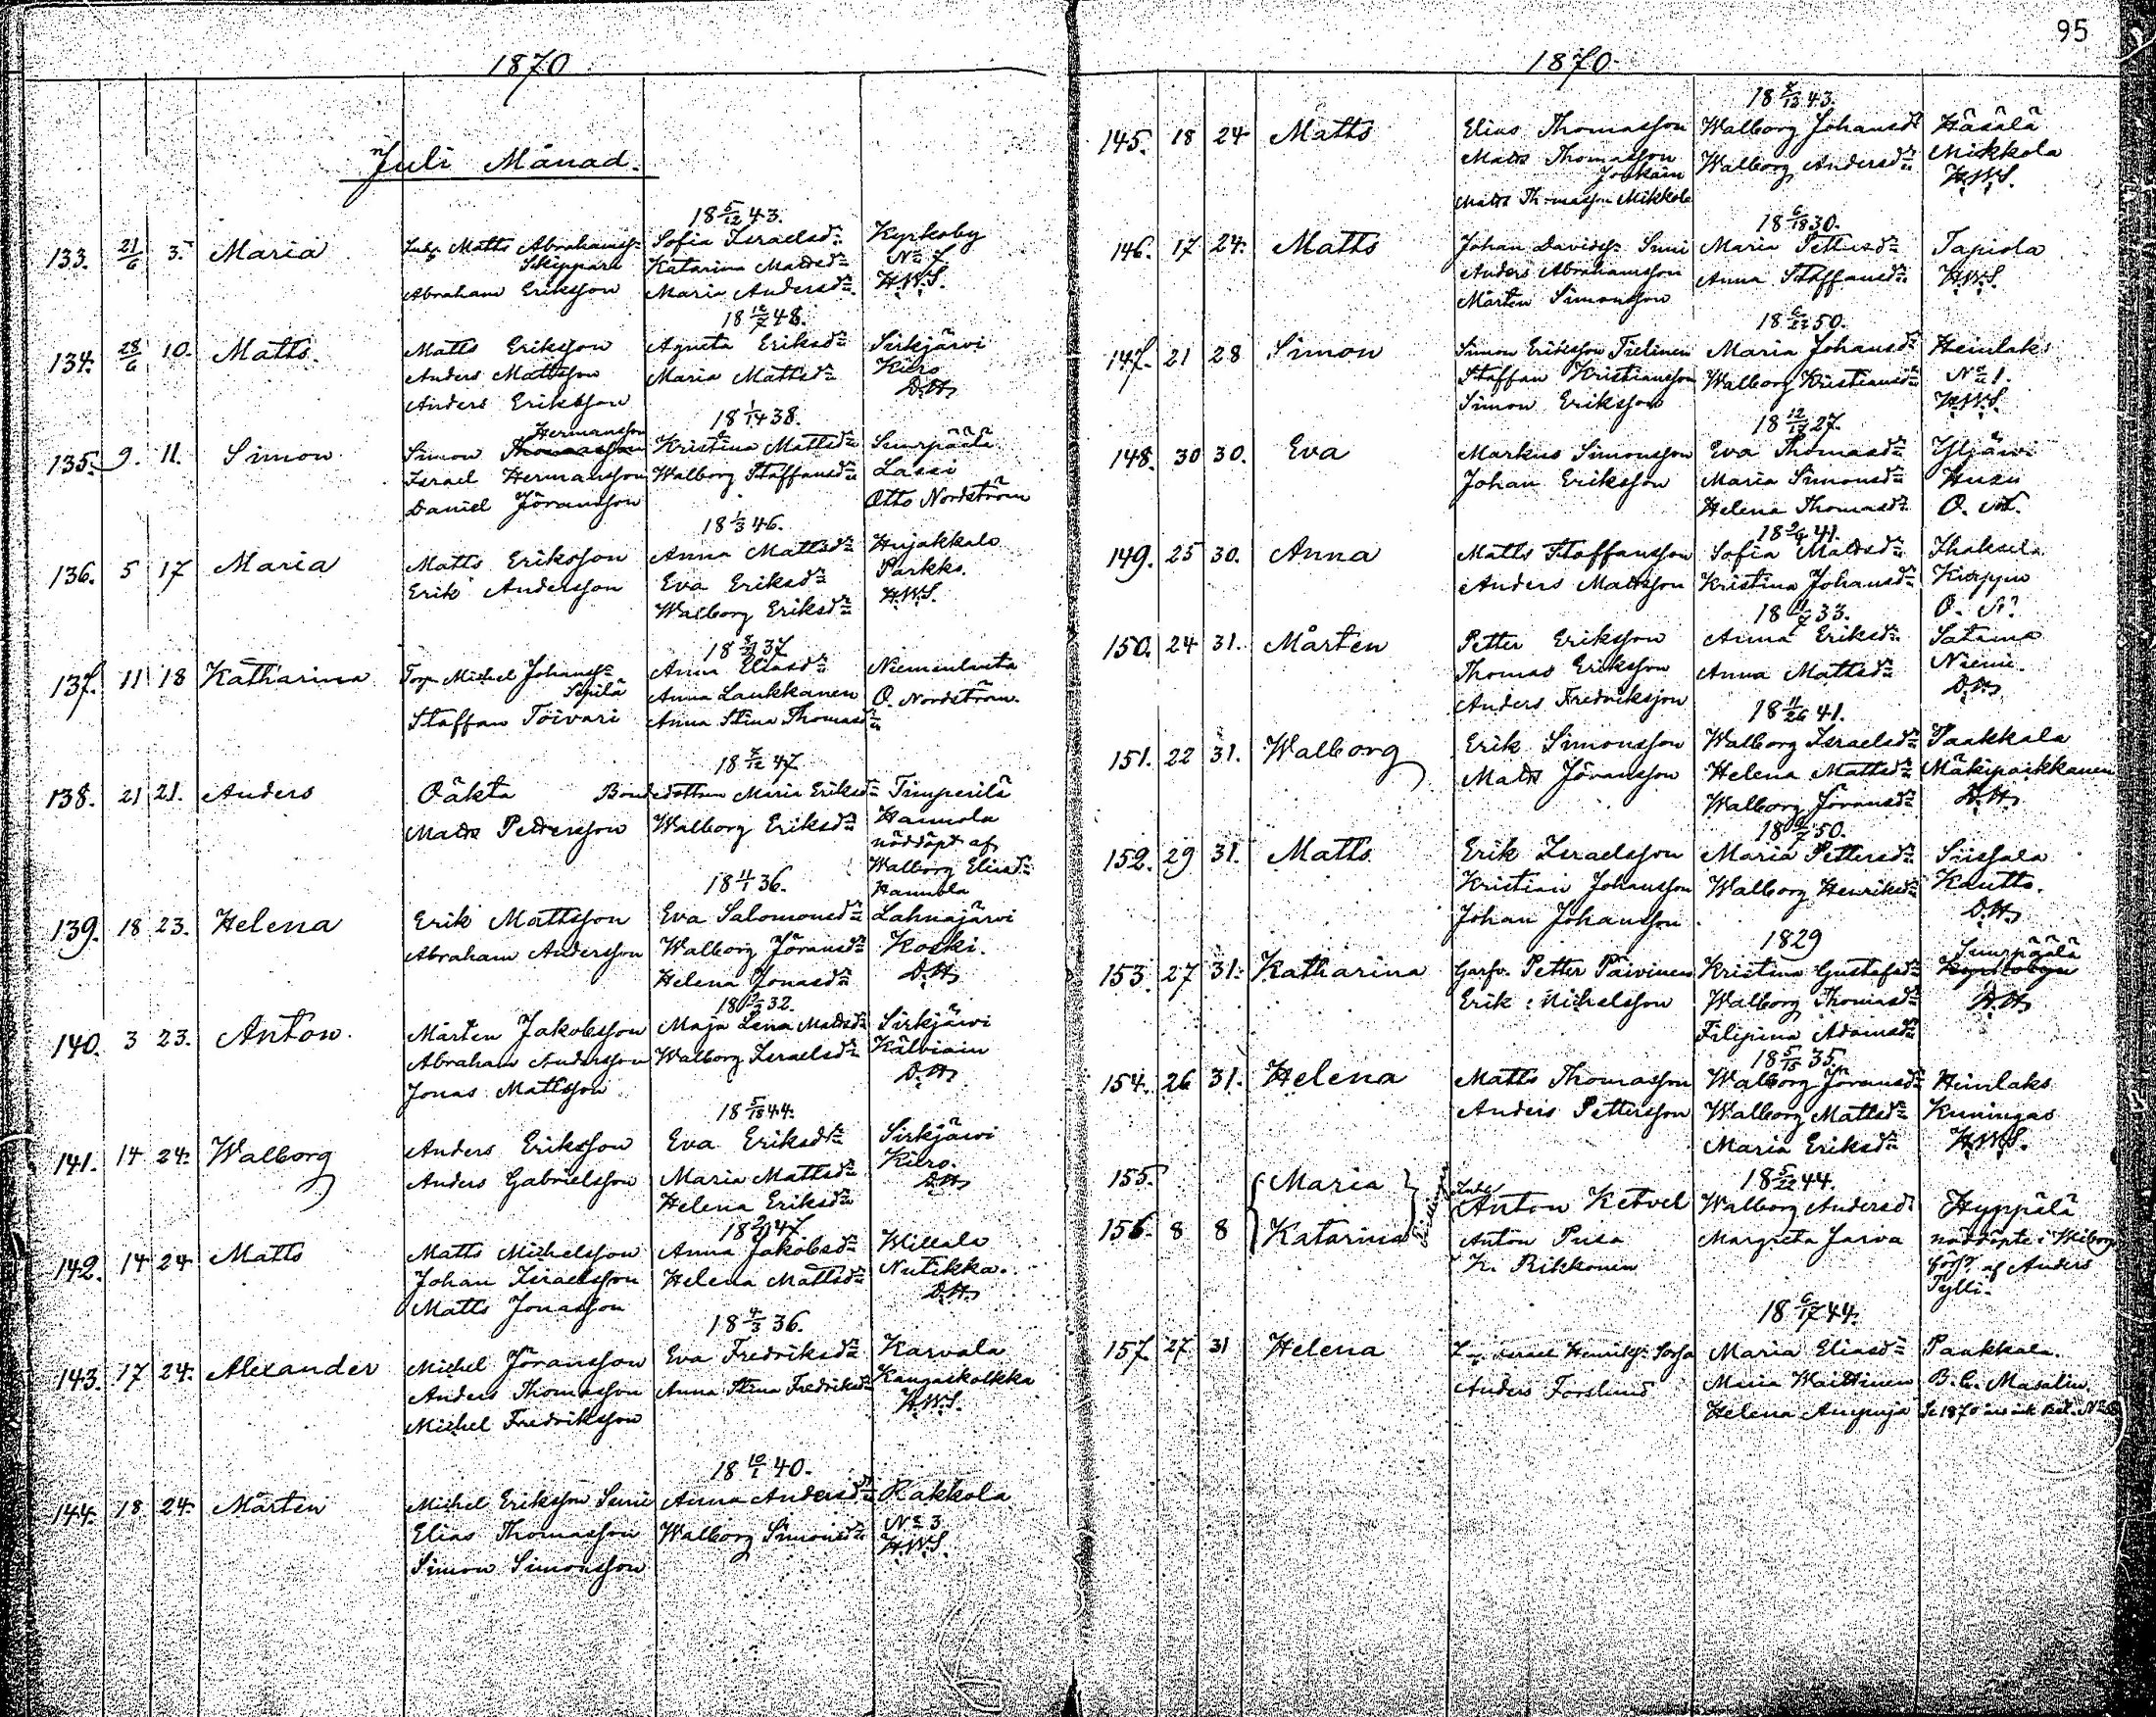 95
1870
Juli Månad.
18 5/12 43.
133. 21/6 3. Maria Matts Abrahamss: Sofia Israelsd:r Kyrkoby
Skippari Katarina Mattsd:r No 7
Abraham Eriksson Maria Andersd:r H.W.S.
18 12/7 48.
134. 28/6 10. Matts. Matts Eriksson Agneta Eriksd:r Sirkjärvi
Anders Mattsson Maria Mattsd:r Kiiro
Anders Eriksson D.H.
18 1/14 38.
Hermansson
135. 9. 11. Simon Simon Thomasson Kristina Mattsd:r Suurpäälä
Israel Hermansson Walborg Staffansd:r Lassi
Daniel Jöransson Otto Nordström
18 1/3 46.
136. 5 17 Maria Matts Eriksson Anna Mattsd:r Hujakkala
Erik Andersson Eva Eriksd:r Parkko.
Walborg Eriksd:r H.W.S.
137. 11 18 Katharina Torp. Michel Johanss: Anna Eliasd:r Niemenlauta
Sepilä Anna Laukkanen O. Nordström.
Staffan Toivari Anna Stina Thomasd:r
18 7/12 47
138. 21 21. Anders Oäkta Bondedottren Maria Eriksd:r Timperilä
Matts Pettersson Walborg Eriksd:r Hannola
nöddöpt af
Walborg Eliasd:r
18 4/1 36. Hannola
139. 18 23. Helena Erik Mattsson Eva Salomonsd:r Lahnajärvi
Abraham Andersson Walborg Jöransd:r Koski.
Helena Jonasd:r D.H.
140. 3 23. Anton. Mårten Jakobsson Maja Lena Mattsd:r Sirkjärvi
Abraham Andersson Walborg Israelsd:r Kälviäin
Jonas Mattsson D.H.
18 5/18 44.
141. 14 24. Walborg Anders Eriksson Eva Eriksd:r Sirkjärvi
Anders Gabrielsson Maria Mattsd:r Kiiro.
Helena Eriksd:r D.H.
142. 14 24 Matts Matts Michelsson Anna Jakobsd:r Willala
Johan Israelsson Helena Mattsd:r Nutikka.
Matts Jonasson D.H.
18 4/3 36.
143. 17 24. Alexander Michel Jöransson Eva Fredriksd:r Karvala
Anders Thomasson Anna Stina Fredriksd:r Kangaskolkka
Michel Fredriksson H.W.S.
18 10/1 40.
144. 18 24. Mårten Michel Eriksson Suni Anna Andersd:r Rakkola
Elias Thomasson Walborg Simonsd:r No 3
Simon Simonsson H.W.S.
1870.
18 7/13 43.
145. 18 24 Matts Elias Thomasson Walborg Johansd:r Häsälä
Matts Thomasson Walborg Andersd:r Mikkola
Matts Thomasson Mikkola H.W.S.
18 6/18 30.
146. 17 24. Matts Johan Davidss: Suni Maria Pettersd:r Tapiola
Anders Abrahamsson Anna Staffansd:r H.W.S.
Mårten Simonsson
18 6/22 50.
147. 21 28 Simon Simon Eriksson Tielinen Maria Johansd:r Heinlaks
Staffan Kristiansson Walborg Kristiansd:r No 1.
Simon Eriksson H.W.S.
18 12/12 27.
148. 30 30. Eva Markus Simonsson Eva Thomasd:r Ylijärvi
Johan Eriksson Maria Simonsd:r Husu
Helena Thomasd:r
149. 25 30. Anna Matts Staffansson Sofia Mattsd:r Ihaksela
Anders Mattsson Kristina Johansd:r Kirppu
150. 24 31. Mårten Petter Eriksson Anna Eriksd:r Satama
Thomas Eriksson Anna Mattsd:r Niemi.
Anders Fredriksson D.H.
18 11/26 41.
151. 22 31. Walborg Erik Simonsson Walborg Israelsd:r Paakkala
Matts Jöransson Helena Mattsd:r Mäkipaikkanen
Walborg Jöransd:r D.H.
152. 29 31. Matts. Erik Israelsson Maria Pettersd:r Siissala
Kristian Johansson Walborg Henriksd:r Kautto.
Johan Johansson D.H.
1829 Suurpäälä
153. 27 31. Katharina Garfv. Petter Päivinen Kristina Gustafsd:r Kyrkobyn
Erik Michelsson Walborg Thomasd:r D.H.
Filipina Adamsd:r
18 5/15 35.
154. 26 31. Helena Matts Thomasson Walborg Jöransd:r Heinlaks
Anders Pettersson Walborg Mattsd:r Kuningas
Maria Eriksd:r H.W.S.
18 5/22 44.
155. Maria Anton Ketvel Walborg Andersd:r Hyppälä
156. 8 8 Katarina Anton Pusa Margreta Jarva nöddöpte i Wiborg
K. Rikkonen af Anders
Tylli.
18 6/17 44.
157 27 31 Helena Israel Henrikss: Sorsa Maria Eliasd:r Paakkala.
Anders Forslund Maria Waittinen B. C. Masalin.
Helena Ampuja